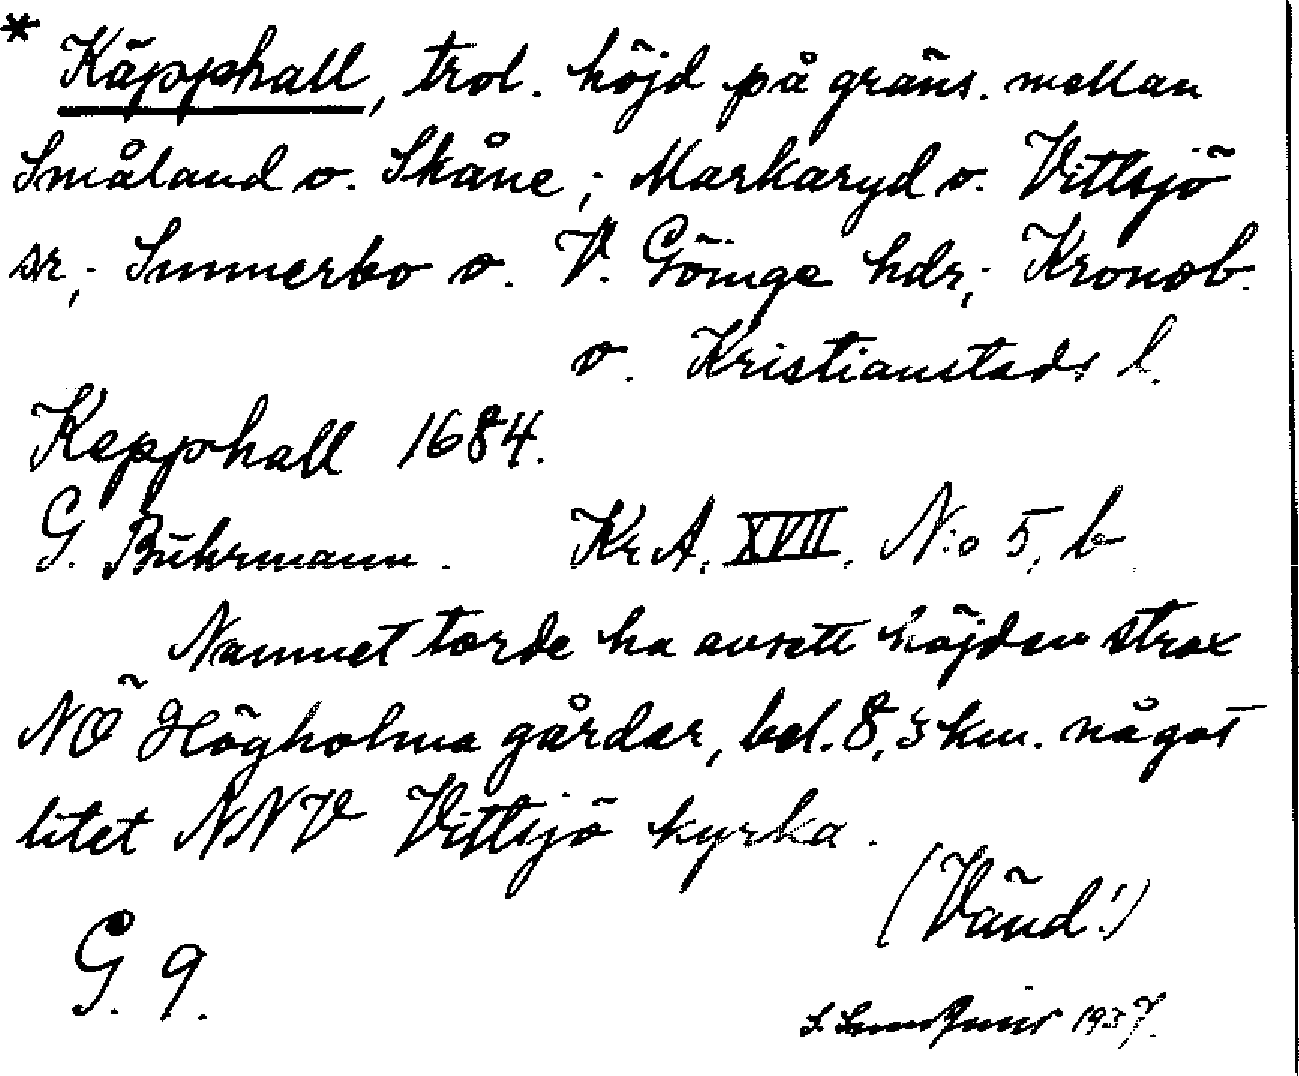 * Käpphall, trol. höjd på gräns. mellan
Småland o. Skåne; Markaryd o. Vittsjö
sr; Sunnerbo o. V. Göinge hdr; Kronob.
o. Kristianstads l.
Kepphall 1684.
G. Buhrmann. Kr. A. XVII. N:o 5, b
Namnet torde ha avsett höjden strax
NÖ Högholma gårdar, bel. 8,5 km. något
litet NNV Vittsjö kyrka.
(Vänd!)
G. 9.
S. 1937.